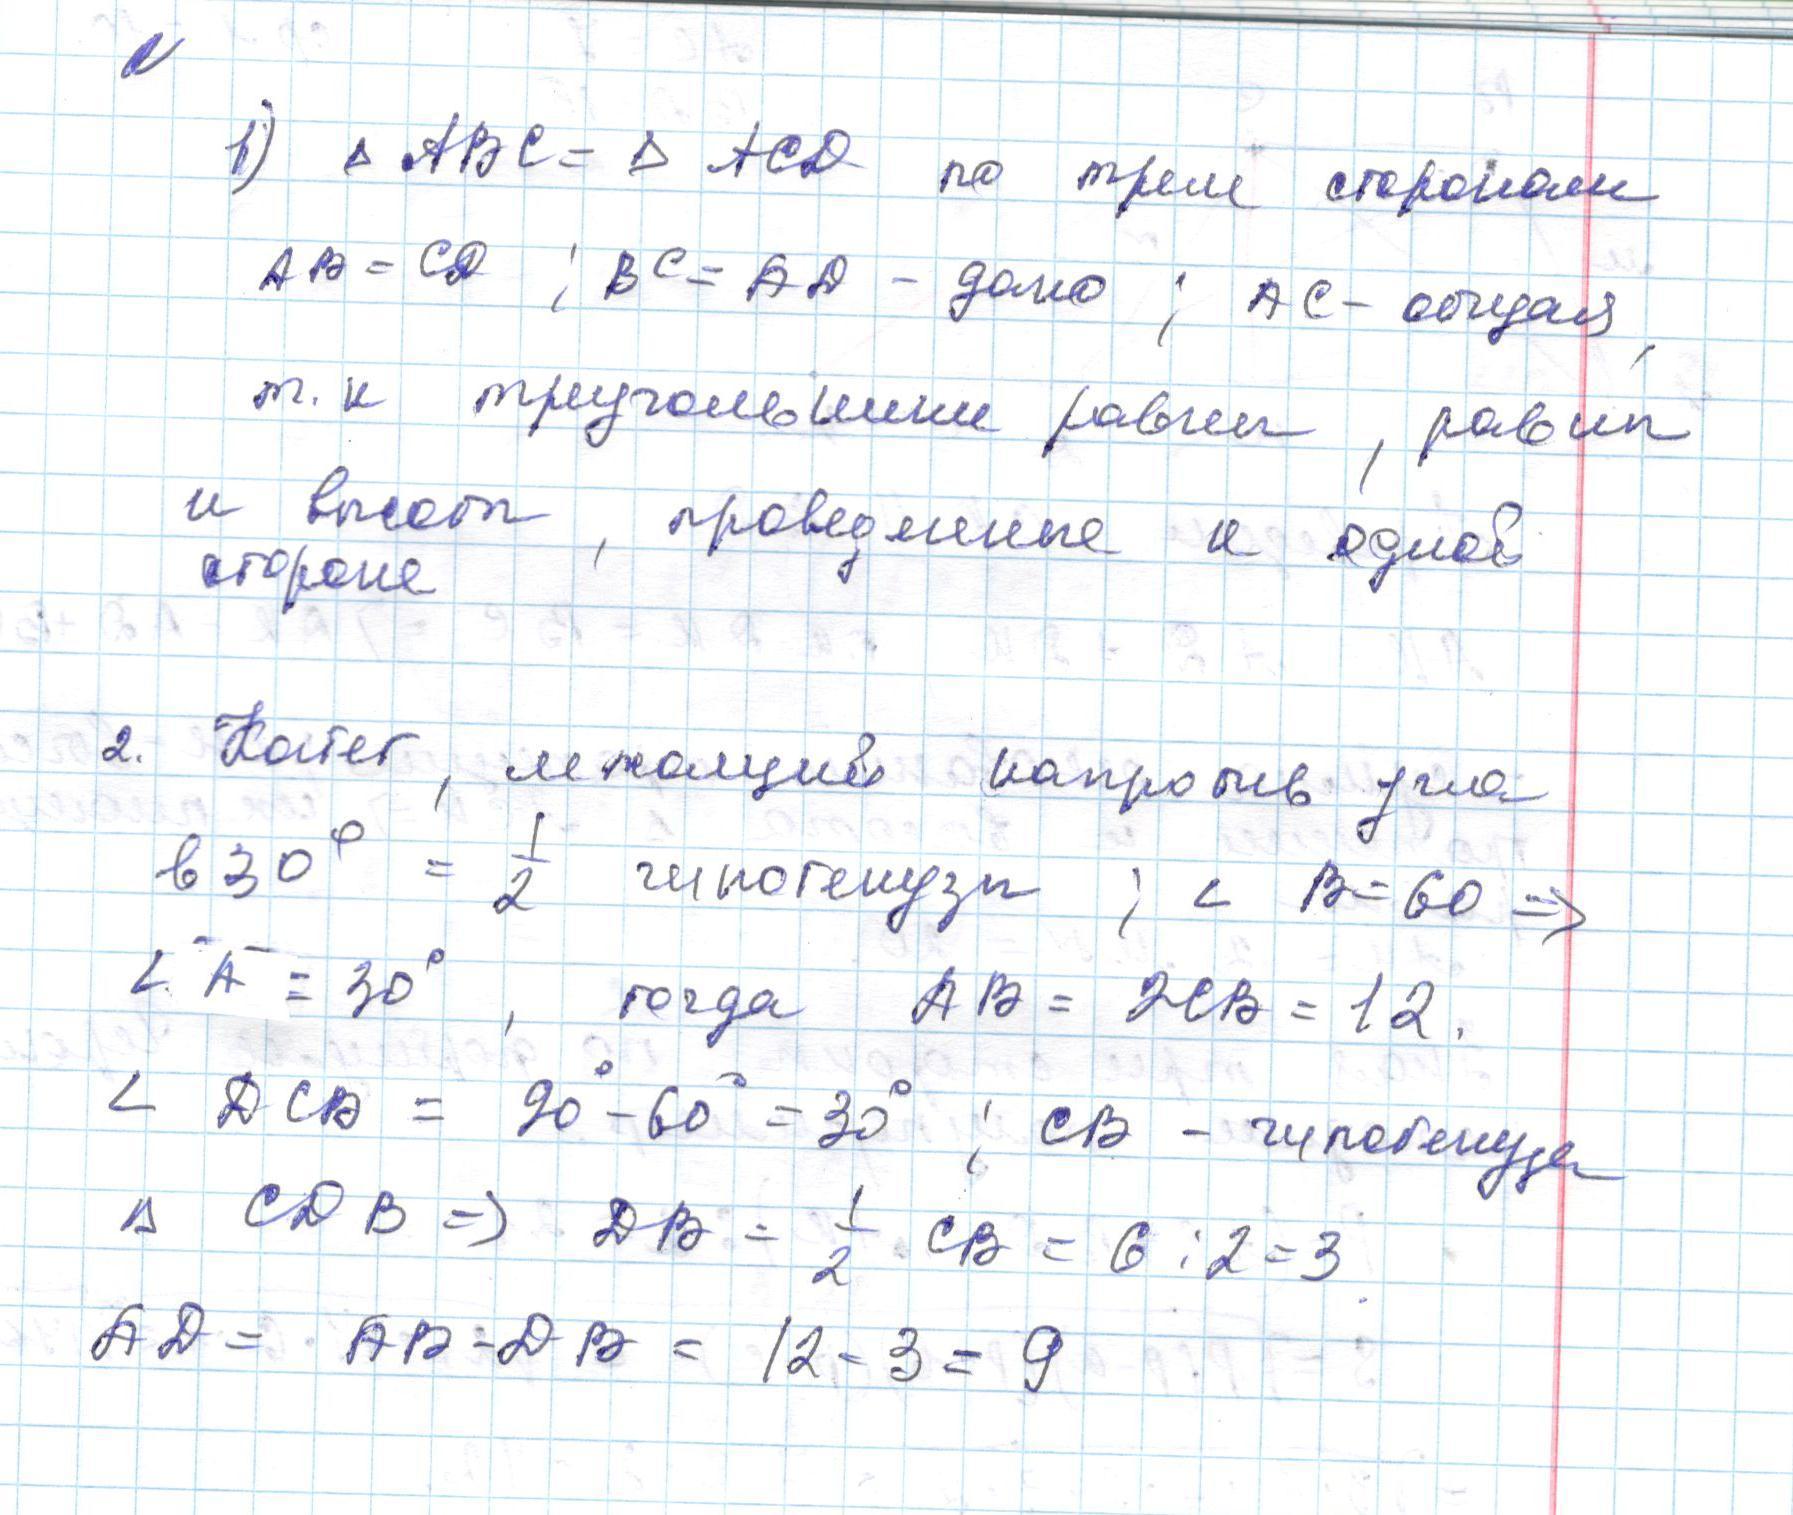 1) △ ABC = △ ACD по трем сторонам
AB = CD ; BC = AD - дано ; AC - общая,
т. к треугольники равны , равны
и высоты , проведенные к одной
стороне
2. Катет , лежащий напротив угла
в 30° = 1/2 гипотенузы ; ∠ B = 60 =>
∠ A = 30° , тогда AB = 2CB = 12.
∠ DCB = 90° - 60° = 30° ; CB - гипотенуза
△ CDB => DB = 1/2 CB = 6 : 2 = 3
AD = AB - DB = 12 - 3 = 9